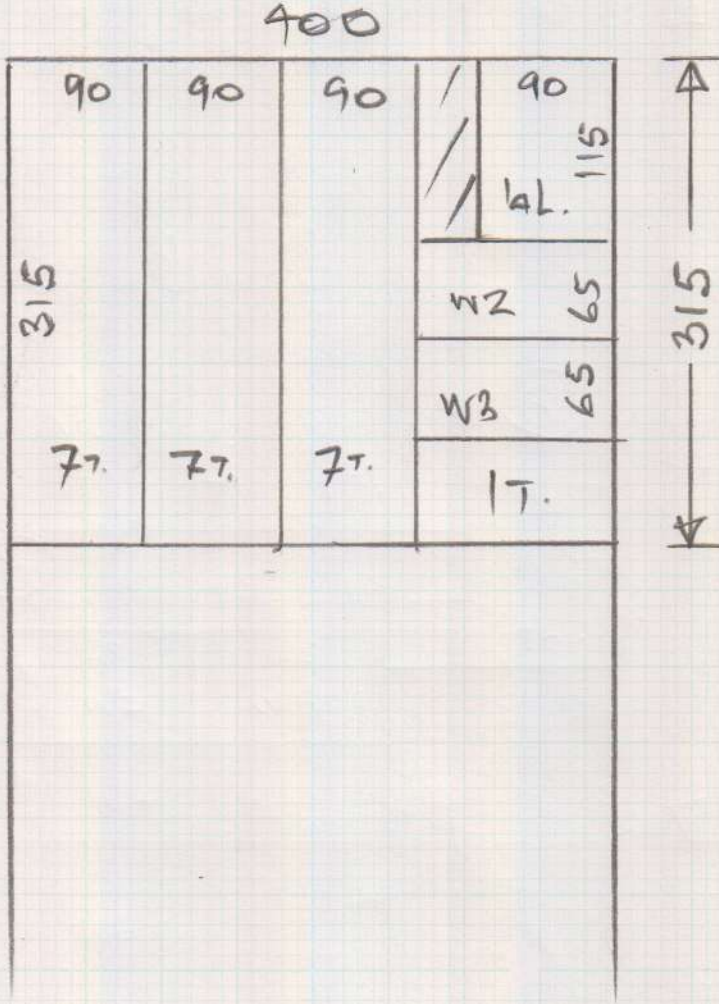 400
90 90 90 90
115
1AL.
315
W2 65
315
W3 65
7T. 7T. 7T.
1T.